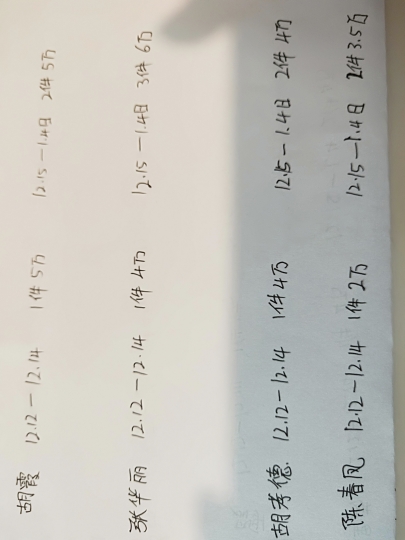 胡霞 12.12-12.14 1件5万 12.15-1.4日 2件5万
张华丽 12.12-12.14 1件4万 12.15-1.4日 3件6万
胡孝德 12.12-12.14 1件4万 12.15-1.4日 2件4万
陈春凤 12.12-12.14 1件2万 12.15-1.4日 2件3.5万